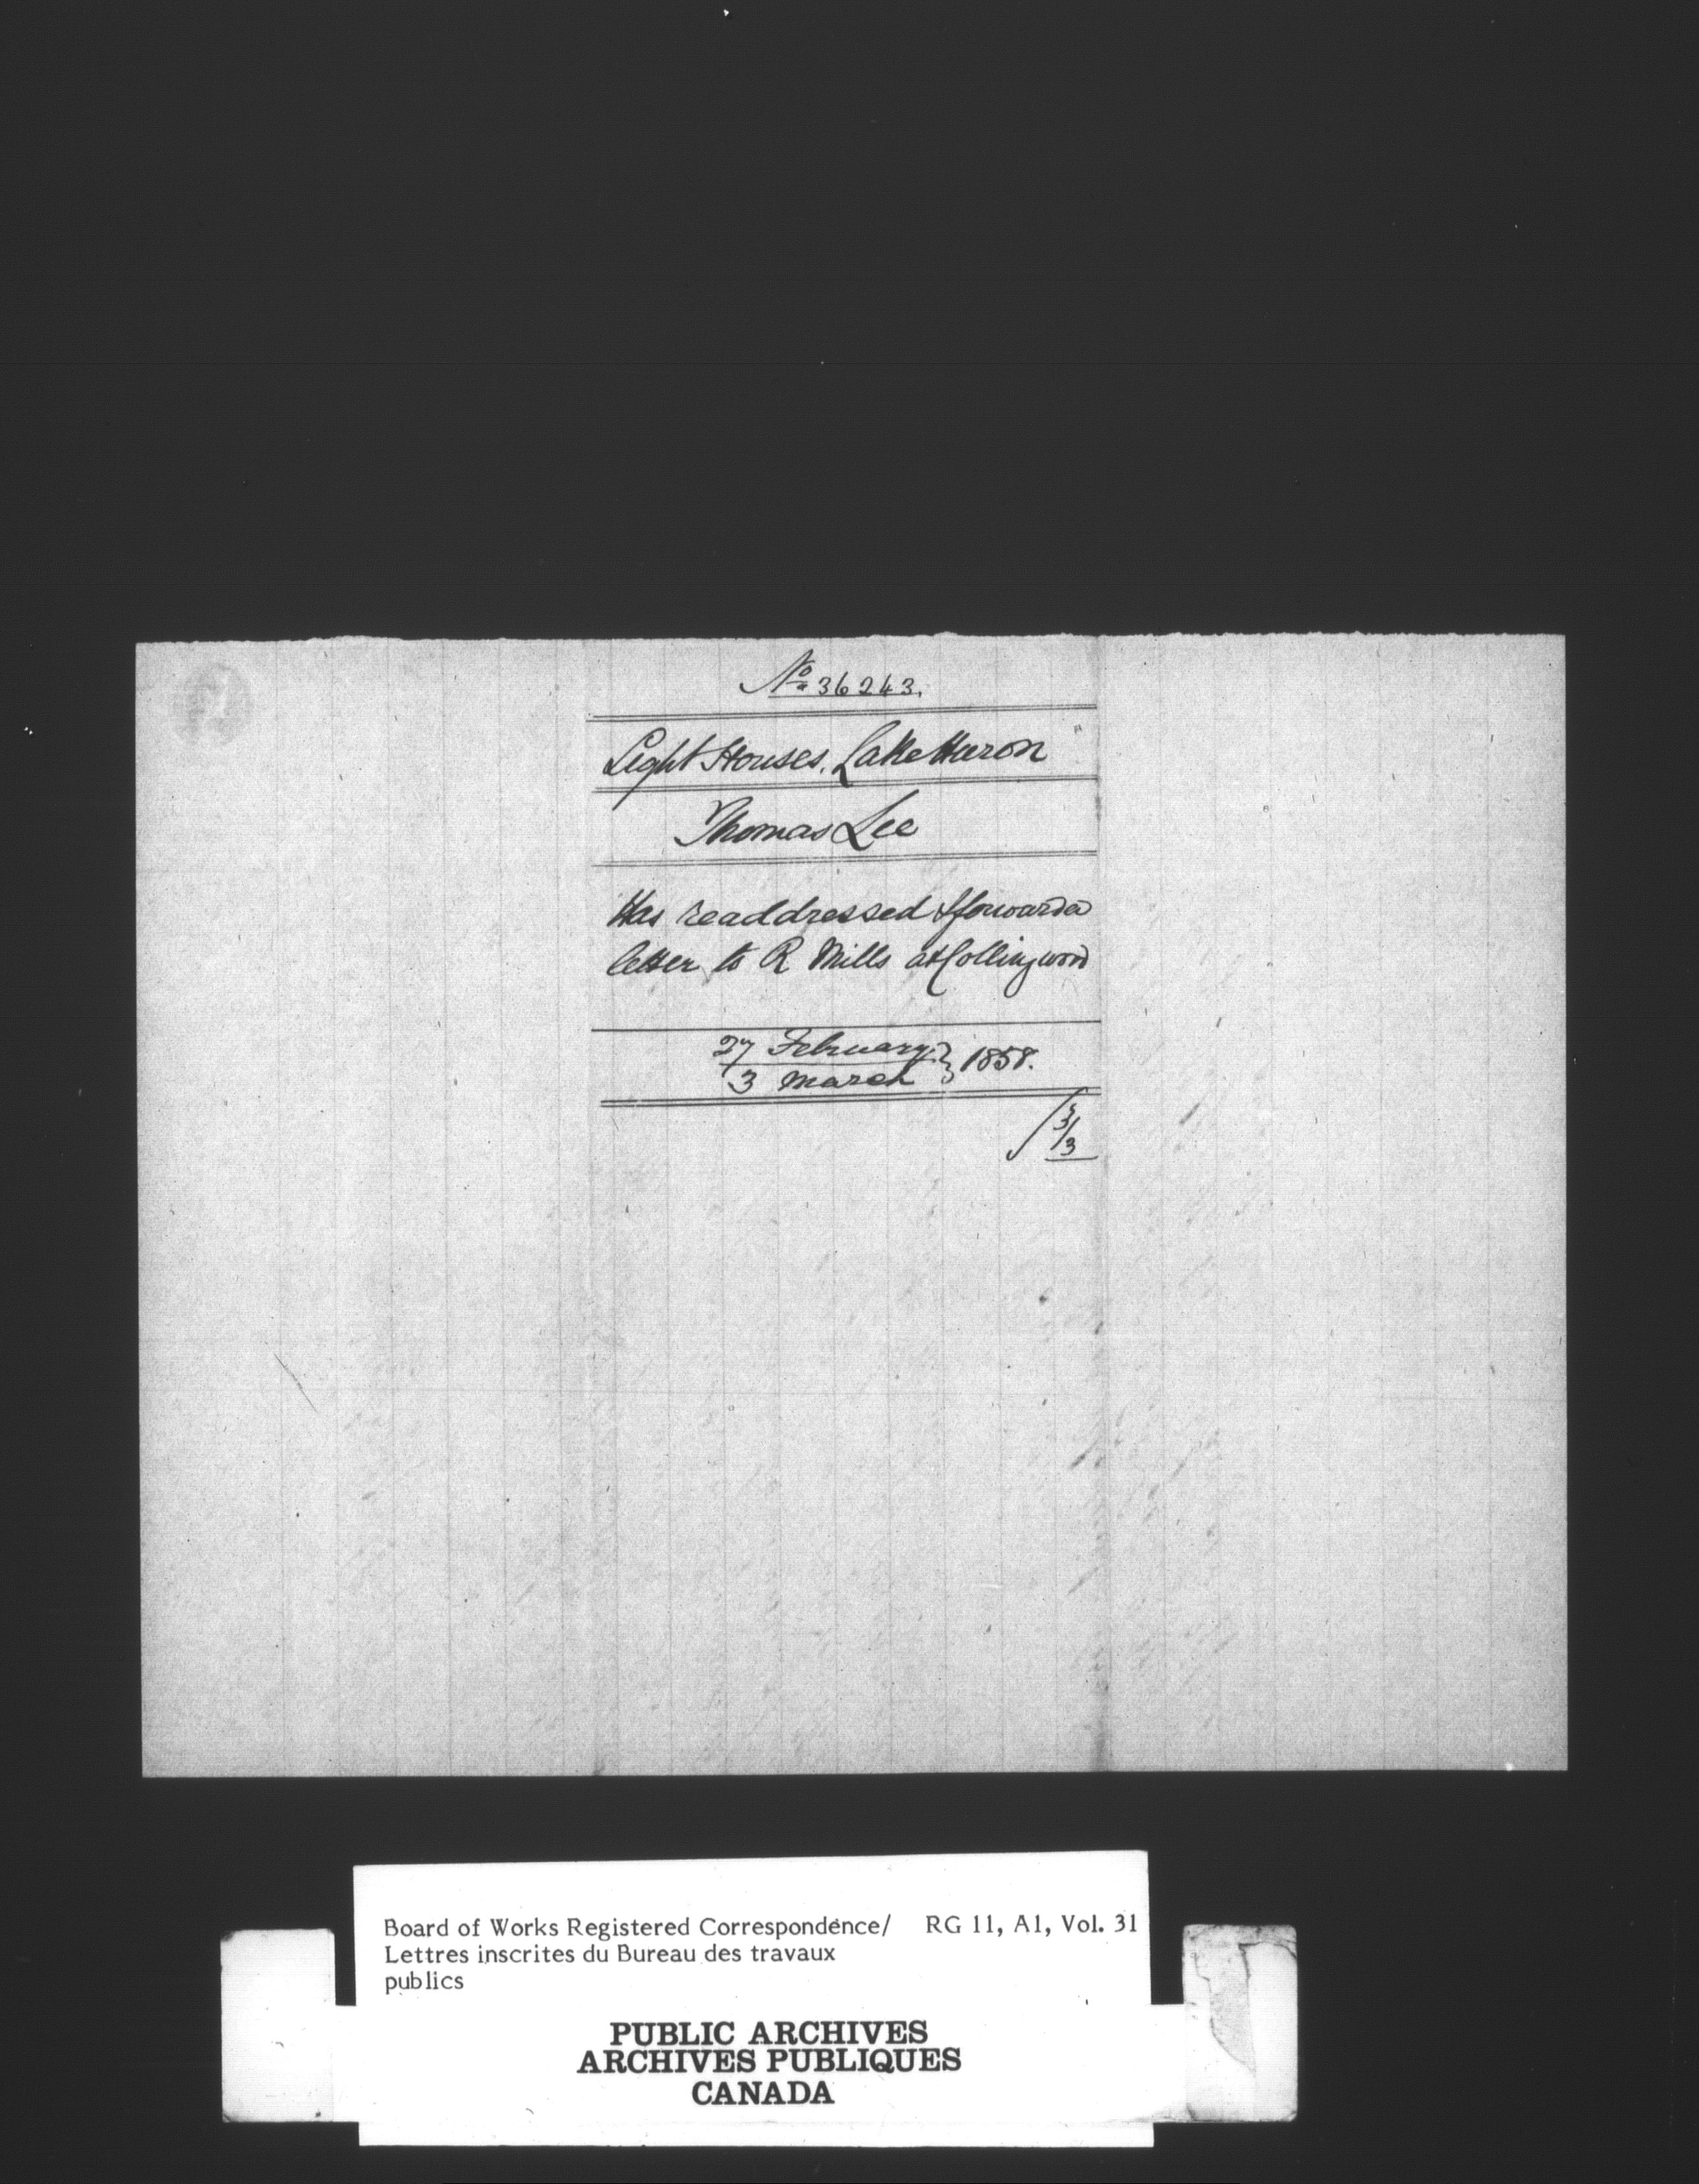 No 36243.
Light Houses. Lake Huron
Thomas Lee
Has readdressed & forwarded
letter to R Mills at Collingwood
27 February } 1858.
3 March
3/3
Board of Works Registered Correspondence/ RG 11, A1, Vol. 31
Lettres inscrites du Bureau des travaux
publics
PUBLIC ARCHIVES
ARCHIVES PUBLIQUES
CANADA